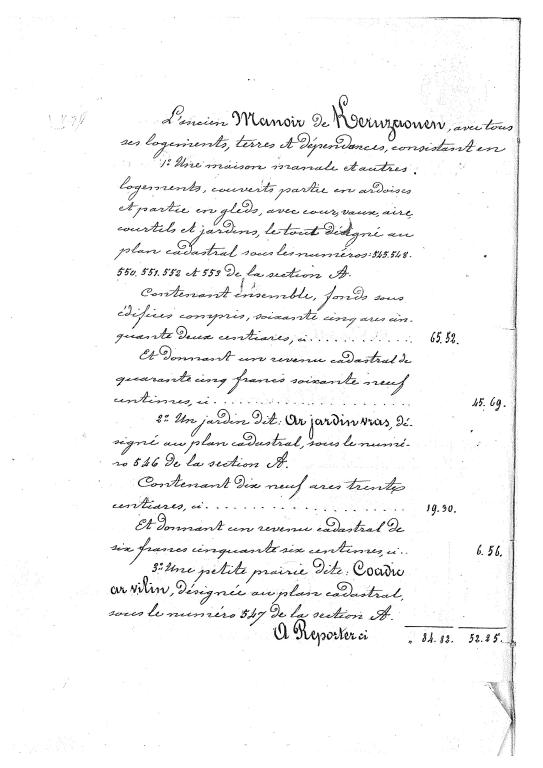 L'ancien Manoir de Keruzaouen, avec tous
ses logements, terres et dépendances, consistant en
1º Une maison manale et autres
logements, couverts partie en ardoises
et partie en gleds, avec cour, vaux, aire
courtils et jardins, le tout désigné au
plan cadastral sous les numéros 545. 548.
550. 551. 552 et 553 de la section A.
Contenant ensemble, fonds sous
édifices compris, soixante cinq ares cin-
quante deux centiares, ci .......... 65.52.
Et donnant un revenu cadastral de
quarante cinq francs soixante neuf
centimes, ci .......... 45.69.
2º Un jardin dit: Ar jardin vras, dé-
signé au plan cadastral, sous le numé-
ro 546 de la section A.
Contenant dix neuf ares trente
centiares, ci .......... 19.30.
Et donnant un revenu cadastral de
six francs cinquante six centimes, ci .. 6.56.
3º Une petite prairie dite: Coadic
ar vilin, désignée au plan cadastral,
sous le numéro 547 de la section A.
A Reporter ci 84.82. 52.25.